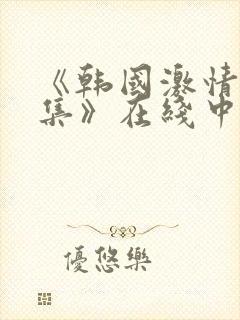 《韩国激情
集》在线中
優悠樂